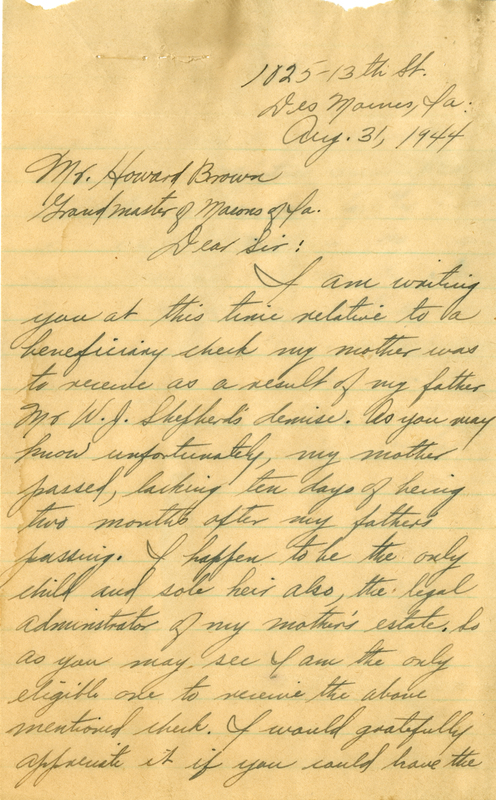 1025-13th St.
Des Moines, Ia.
Aug. 31, 1944
Mr. Howard Brown
Grand Master of Masons of Ia.
Dear Sir:
I am writing
you at this time relative to a
beneficiary check my mother was
to receive as a result of my father
Mr W. J. Shepherd's demise. As you may
know unfortunately, my mother
passed, lacking ten days of being
two months after my father's
passing. I happen to be the only
child and sole heir also, the legal
adminstrator of my mother's estate. So
as you may see I am the only
eligible one to receive the above
mentioned check. I would gratefully
appreciate it if you could have the